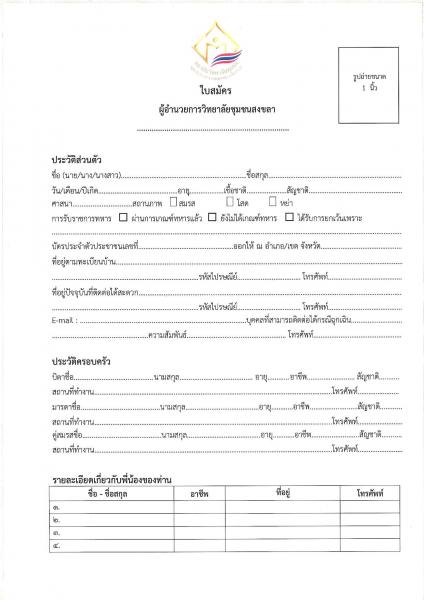 ใบสมัคร
ผู้อำนวยการวิทยาลัยชุมชนสงขลา
รูปถ่ายขนาด
1 นิ้ว
ประวัติส่วนตัว
ชื่อ (นาย/นาง/นางสาว)..........ชื่อสกุล..........
วัน/เดือน/ปีเกิด..........อายุ..........เชื้อชาติ..........สัญชาติ..........
ศาสนา..........สถานภาพ ☐ สมรส ☐ โสด ☐ หย่า
การรับราชการทหาร ☐ ผ่านการเกณฑ์ทหารแล้ว ☐ ยังไม่ได้เกณฑ์ทหาร ☐ ได้รับการยกเว้นเพราะ
บัตรประจำตัวประชาชนเลขที่..........ออกให้ ณ อำเภอ/เขต จังหวัด..........
ที่อยู่ตามทะเบียนบ้าน..........
..........รหัสไปรษณีย์..........โทรศัพท์..........
ที่อยู่ปัจจุบันที่ติดต่อได้สะดวก..........
..........รหัสไปรษณีย์..........โทรศัพท์..........
E-mail : ..........บุคคลที่สามารถติดต่อได้กรณีฉุกเฉิน..........
..........ความสัมพันธ์..........โทรศัพท์..........
ประวัติครอบครัว
บิดาชื่อ..........นามสกุล..........อายุ..........อาชีพ..........สัญชาติ..........
สถานที่ทำงาน..........โทรศัพท์..........
มารดาชื่อ..........นามสกุล..........อายุ..........อาชีพ..........สัญชาติ..........
สถานที่ทำงาน..........โทรศัพท์..........
คู่สมรสชื่อ..........นามสกุล..........อายุ..........อาชีพ..........สัญชาติ..........
สถานที่ทำงาน..........โทรศัพท์..........
รายละเอียดเกี่ยวกับพี่น้องของท่าน
ชื่อ - ชื่อสกุล อาชีพ ที่อยู่ โทรศัพท์
๑.
๒.
๓.
๔.